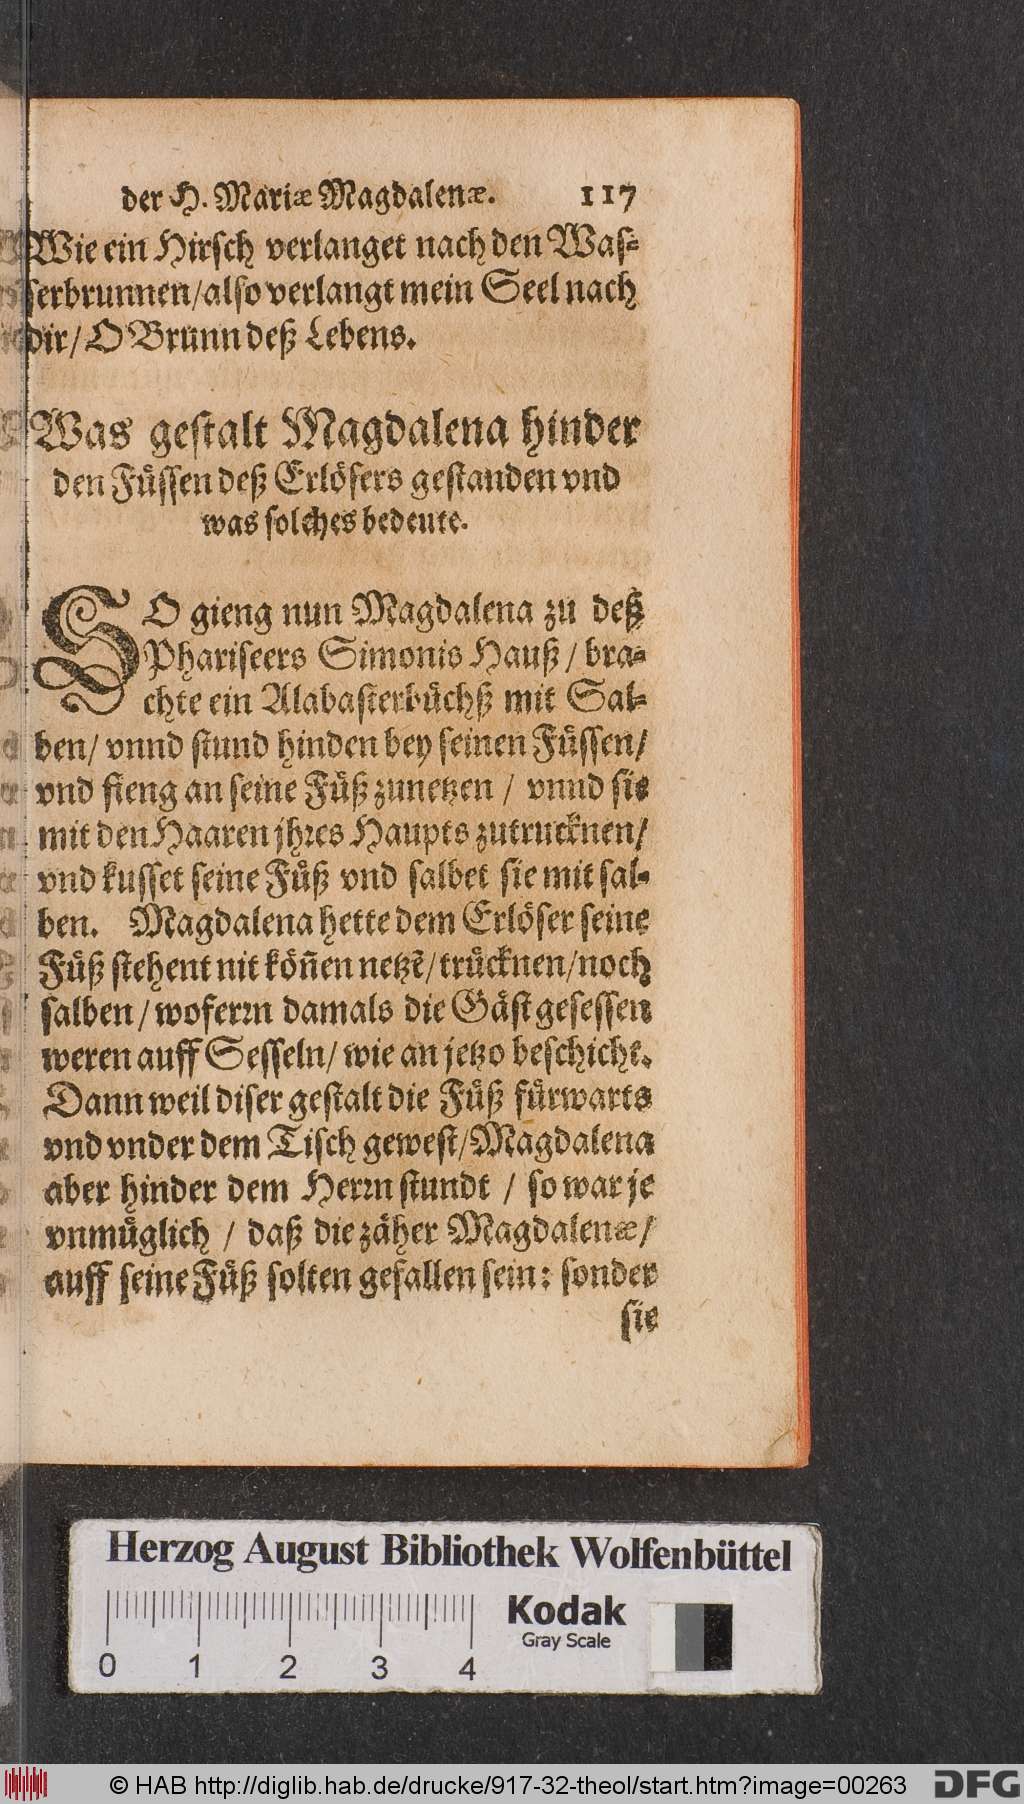 der H. Mariæ Magdalenæ. 117
Wie ein Hirsch verlanget nach den Was-
serbrunnen/also verlangt mein Seel nach
dir/ O Brunn deß Lebens.
Was gestalt Magdalena hinder
den Füssen deß Erlösers gestanden vnd
was solches bedeute.
SO gieng nun Magdalena zu deß
Phariseers Simonis Hauß / bra-
chte ein Alabasterbüchß mit Sal-
ben/ vnnd stund hinden bey seinen Füssen/
vnd fieng an seine Füß zunetzen / vnnd sie
mit den Haaren jhres Haupts zutrucknen/
vnd kusset seine Füß vnd salbet sie mit sal-
ben. Magdalena hette dem Erlöser seine
Füß stehent nit köñen netzẽ/trücknen/noch
salben / woferrn damals die Gäst gesessen
weren auff Sesseln/ wie an jetzo beschicht.
Dann weil diser gestalt die Füß fürwarts
vnd vnder dem Tisch gewest/Magdalena
aber hinder dem Herrn stundt / so war je
vnmüglich / daß die zäher Magdalenæ/
auff seine Füß solten gefallen sein: sonder
sie
Herzog August Bibliothek Wolfenbüttel
Kodak
Gray Scale
0 1 2 3 4
© HAB http://diglib.hab.de/drucke/917-32-theol/start.htm?image=00263
DFG